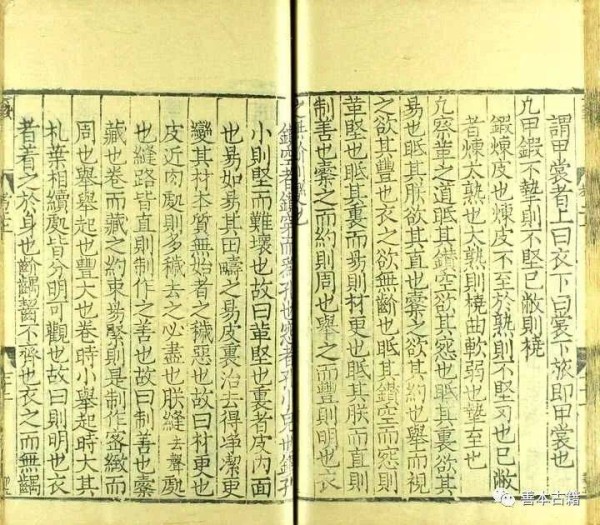 謂甲裳者上曰衣下曰裳下旅即甲裳也
凡甲鍛不摯則不堅已敝則橈
鍛煉皮也煉皮不至於熟則不堅刃也已敝
者煉太熟也太熟則橈曲軟弱也摯至也
凡察革之道眂其鑽空欲其窓也眂其裏欲其
易也眂其朕欲其直也櫜之欲其約也舉而視
之欲其豐也衣之欲無齘也眂其鑽空而窓則
革堅也眂其裏而易則材更也眂其朕而直則
制善也櫜之而約則周也舉之而豐則明也衣
之無齘則變也
鑽空者鑽穴而為孔也窓者孔小皃也鑽孔
小則堅而難壞也故曰革堅也裏者皮內面
也易如易其田疇之易皮裏治去得淨潔更
變其材本質無始者之穢惡也故曰材更也
皮近肉處則多穢去之必盡也朕縫去聲處
也縫路皆直則制作之善也故曰制善也櫜
藏也卷而藏之約束易緊則是制作密緻而
周也舉舉起也豐大也卷時小舉起時大其
札葉相續處皆分明可觀也故曰則明也衣
者着之於身也齘齟齬不齊也衣之而無齟
善本古籍